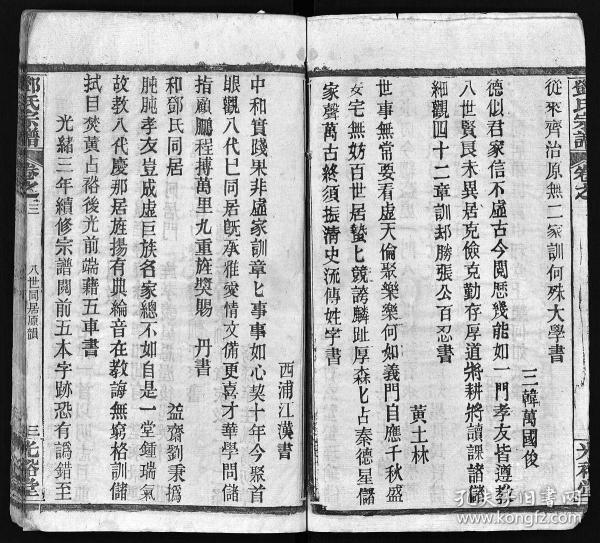 鄧氏宗譜
卷之
從來齊治原無二家訓何殊大學書
三韓萬國俊
德似君家信不虛古今閱歷幾能如一門孝友皆遵教
八世賢良未異居克儉克勤存厚道將耕將讀課諸儲
細觀四十二章訓却勝張公百忍書
黃土林
世事無常要看虛天倫聚樂樂何如義門自應千秋盛
安宅無妨百世居蟄匕競誇麟趾厚森匕占秦德星儲
家聲萬古終須振清史流傳姓字書
光裕堂
西浦江漢書
中和實踐果非虛家訓章匕事事如心契十年今聚首
眼觀八代巳同居既承雅愛情文備更喜才華學問儲
指顧鵬程搏萬里九重旌獎賜 丹書
和鄧氏同居
益齋劉秉撝
肫肫孝友豈成虛巨族名家總不如自是一堂鍾瑞氣
故教八代慶那居旌揚有典綸音在教誨無窮格訓儲
拭目焚黃占裕後光前端藉五車書
光緒三年續修宗譜閱前五本字跡恐有譌錯至
鄧氏宗譜
卷之三
八世同居原韻
三
光裕堂
孔夫子旧书网
www.kongfz.com